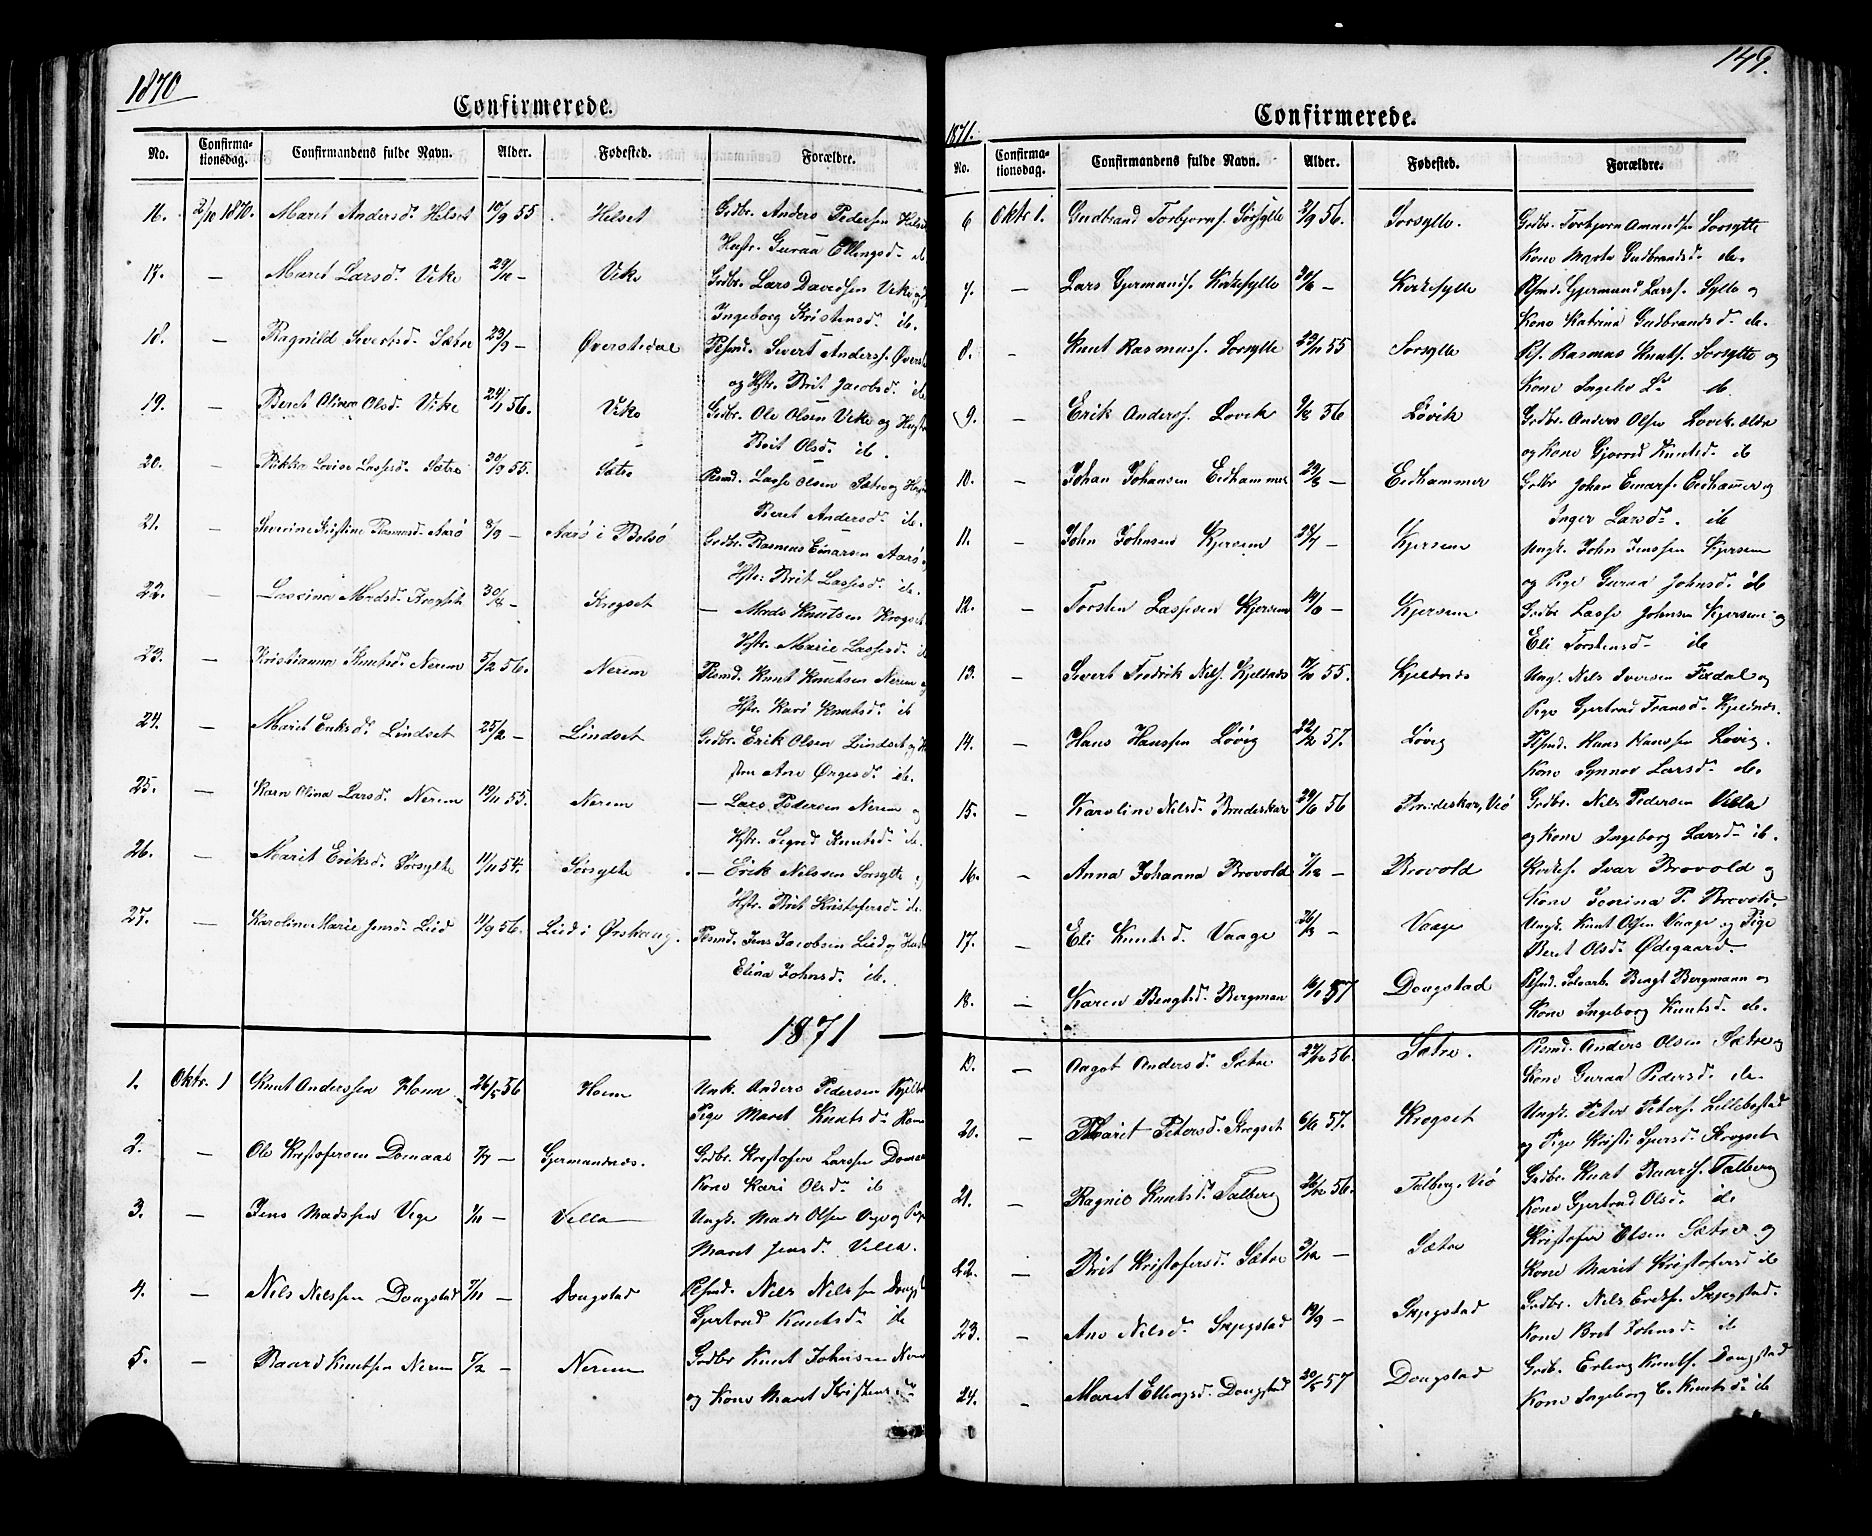 1870
Confirmerede.
No. Confirma-tionsdag. Confirmandens fulde Navn. Alder. Fødested. Forældre.
16. 2/10 1870. Marit Andersd. Helset 10/9 55. Helset Grdbr. Anders Pedersen Helset
Hustr. Guraa Ellingsd. ib
17. — Marit Larsd. Vike 29/10 — Vike Grdbr. Lars Davidsen Vike og
Ingeborg Kristensd. ib.
18. — Ragnild Sivertsd. Sætre 23/9 — Øverstedal Plsmd. Sivert Anderss. Øverst
og Hstr. Brit Jacobsd. ib
19. — Beret Oline Olsd. Vike 24/1 56. Vike Grdbr. Ole Olsen Vike og Hustr
Brit Olsd. ib.
20. — Lovise Lassesd. Sætre 55. Sætre Plsmd. Lasse Olsen Sætre og
Beret Andersd. ib.
21. — Severine Kristine Rasmusd. Aarø 8/9 — Aarø i Bolsø Grdbr. Rasmus Einarsen Aarø
Hstr. Brit Lassesd. ib.
22. — Madsd. Krogset 30/ — Krogset — Mads Knutsen Krogset
Hstr. Marie Lassesd. ib
23. — Kristianna Knutsd. Nerem 5/2 56. Nerem Plsmd. Knut Knutsen Nerem og
Hstr. Kari Knutsd. ib
24. — Marit Eriksd. Lindset 25/2 — Lindset Grdbr. Erik Olsen Lindset og H
stru Ane Ørgesd. ib.
25. — Karn Olina Larsd. Nerem 19/11 55. Nerem — Lars Pedersen Nerem og
Hstr. Sigrid Knutsd. ib.
26. — Marit Eriksd. Sørsylte 11/11 54. Sørsylte — Erik Nilssen Sørsylte og
Hstr. Brit Kristofersd. ib.
27. — Karoline Marie Jensd. Lied 11/9 56. Lied i Ørskoug. Plsmd. Jens Jacobsen Lied og
Elina Johnsd. ib.
1871
1. Oktr. 1 Knut Anderssen Hoem 26/5 56 Hoem Unk. Anders Pedersen
Pige Maret Knutsd. Hoem
2. — Ole Kristofersen Domaas — Gjermundnes. Grdbr. Kristofer Larssen Domaas
Kone Kari Olsd. ib
3. — Jens Madssen Vege — Villa Ungk. Mads Olsen Vege og Pige
Maret Jensd. Villa.
4. — Nils Nilssen Dougstad 7/11 — Dougstad Plsmd. Nils Nilssen Dougst
Gjertrud Knutsd. ib
5. — Baard Knutsen Nerem — Nerem Grdbr Knut Johnsen Nerem
og Kone Maret Kristensd.
149.
Confirmerede.
1871.
No. Confirma-tionsdag. Confirmandens fulde Navn. Alder. Fødested. Forældre.
6 Oktr 1. Gudbrand Torbjørns. Sørsylte 2/9 56. Sørsylte. Grdbr. Torbjørn Amunds. Sorsylte
Kone Marta Gudbrandsd. ib.
7. — Lars Gjermunds. Kirkesylte — Kirkesylte Plsmd. Gjermund Larss. Sylte og
Kone Katrina Gudbrandsd. ib.
8. — Knut Rasmuss. Sorsylte 29/11 55 Sorsylte Pl. Rasmus Knuts. Sorsylte og
Kone Ingeleiv L. ib
9. — Erik Anderss. Lovik 56 Løvik Grdbr. Anders Olsen Lovik ældre
og Kone Gjørrid Knutsd. ib
10. — Johan Johansen Eidhammer — Eidhammer Grdbr Johan Einars. Eidhammer og
Inger Larsd. ib
11. — John Johnsen Kjersem — Kjersem Ungk. John Jenssen Kjersem
og Pige Guraa Johnsd. ib
12. — Torsten Lassesen Kjersem — Kjersem Grdbr Lasse Johnsen Kjersem og
Eli Torstensd. ib
13. — Sivert Fredrik Nils. Kjeldnæs 55. Kjeldnæs Ung. Nils Iversen Fixdal og
Pige Gjertrud Fransd. Kjeldnæs.
14. — Hans Hanssen Løvig 22/2 57. Løvig Plsmd. Hans Hanssen Lovig.
Kone Synnøv Larsd. ib.
15. — Karoline Nilsd. Bredeskar 56 Bredeskar, Veø Grdbr. Nils Pedersen Villa
og Kone Ingeborg Larsd. ib.
16. — Anna Johanna Brovold 7/12 — Brovold Ivar Brovold og
Kone P. Brovold.
17. — Eli Knutsd. Vaage 26/3 — Vaage Ungk. Knut Olsen Vaage og Pige
Beret Olsd. Ødegaard.
18. — Karen Bengtsd. Bergman 16/1 57 Dougstad Plsmd. Bengt Bergmann og
Kone Ingeborg Knutsd. ib.
19. — Aagot Andersd. Sætre 56. Sætre. Plsmd. Anders Olsen Sætre og
Kone Guraa Pedersd. ib.
20. — Marit Petersd. Krogset 57. Krogset Ungk. Peter Peters. Lillebostad
og Pige Kristi Krogset
21. — Ragnie Knutsd. Talberg 26/12 56. Talberg, Veø Grdbr. Knut Baards. Talberg
Kone Gjertrud Olsd. ib.
22. — Brit Kristofersd. Sætre 3/12 — Sætre Kristofer Olsen Sætre og
Kone Marit Kristofersd ib
23. — Ane Nilsd. Skjegstad 19/9 — Skjegstad Grdbr. Nils Eriks. Skjegstad.
Kone Brit Johnsd. ib
24. — Maret Ellingsd. Dougstad 20/5 57 Dougstad Grdb. Erling Knuts. Dougstad
Kone Ingeborg E. Knutsd. ib